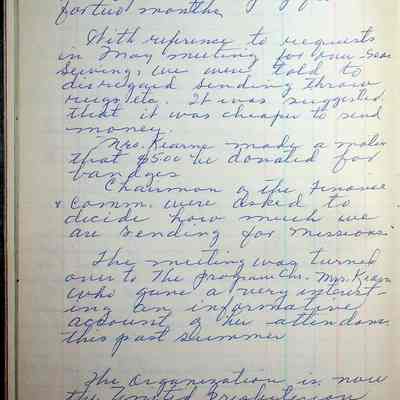 for two months.
With reference to requests
in May meeting for our Sea
Sewing, we were told to
disregard sending throw
rugs, etc. It was suggested
that it was cheaper to send
money.
Mrs. Kearne made a motion
that $5.00 be donated for
bandages
Chairman of the Finance
Comm. were asked to
decide how much we
are sending for missions.
The meeting was turned
over to the program Chr. Mrs. Kearn
who gave a very interest-
ing an informative
account of her attendance
this past summer
The Organization is now
the United Presbyterian